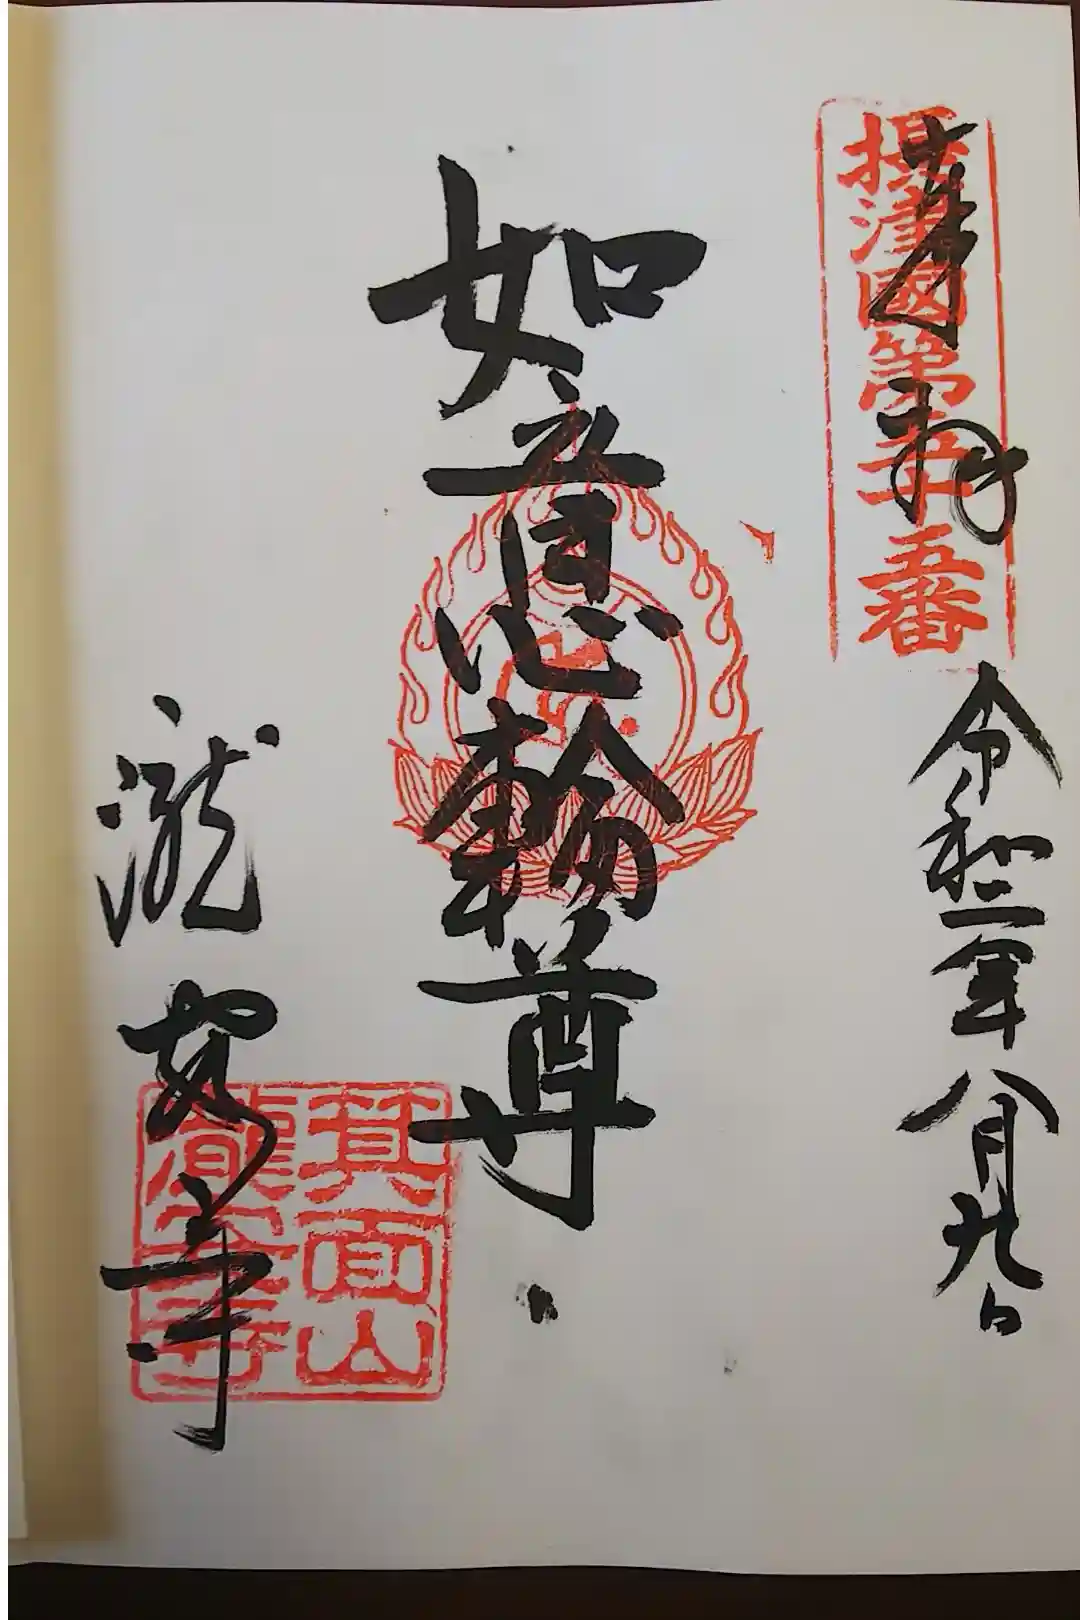 奉拝
摂津國第五十五番
令和二年八月九日
如意輪尊
瀧安寺
箕面山
瀧安寺